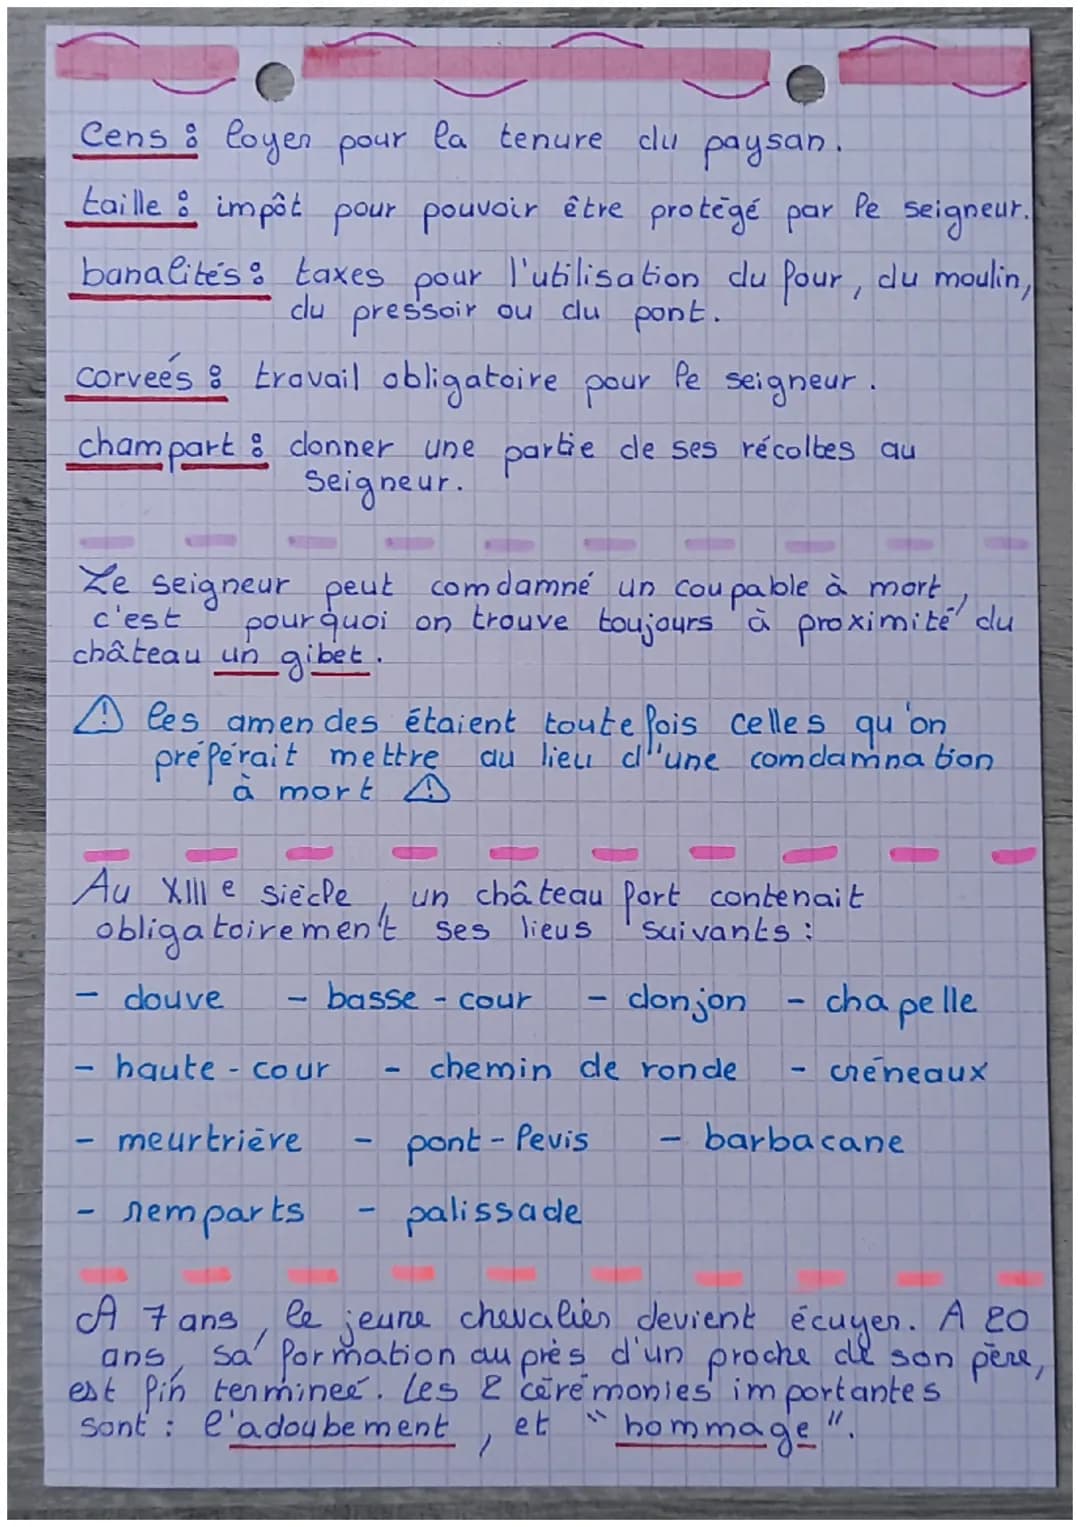 Cens : loyer pour la tenure du paysan.
taille : impôt pour pouvoir être protégé par le seigneur.
banalités : taxes pour l'utilisation du four, du moulin,
du pressoir ou du pont.
corveés : travail obligatoire pour le seigneur.
champart : donner une partie de ses récoltes au
seigneur.
Le seigneur peut comdamné un coupable à mort,
c'est pourquoi on trouve toujours à proximité du
château un gibet.
⚠ les amendes étaient toutefois celles qu'on
préférait mettre au lieu d'une comdamnation
à mort ⚠
Au XIII e siècle, un château fort contenait
obligatoirement ses lieus suivants :
- douve - basse-cour - donjon - chapelle
- haute-cour - chemin de ronde - créneaux
- meurtrière - pont-levis - barbacane
- remparts - palissade
A 7 ans, le jeune chevalier devient écuyer. A 20
ans, sa formation auprès d'un proche de son père,
est fin termineé. Les 2 cérémonies importantes
sont : l'adoubement, et "hommage".